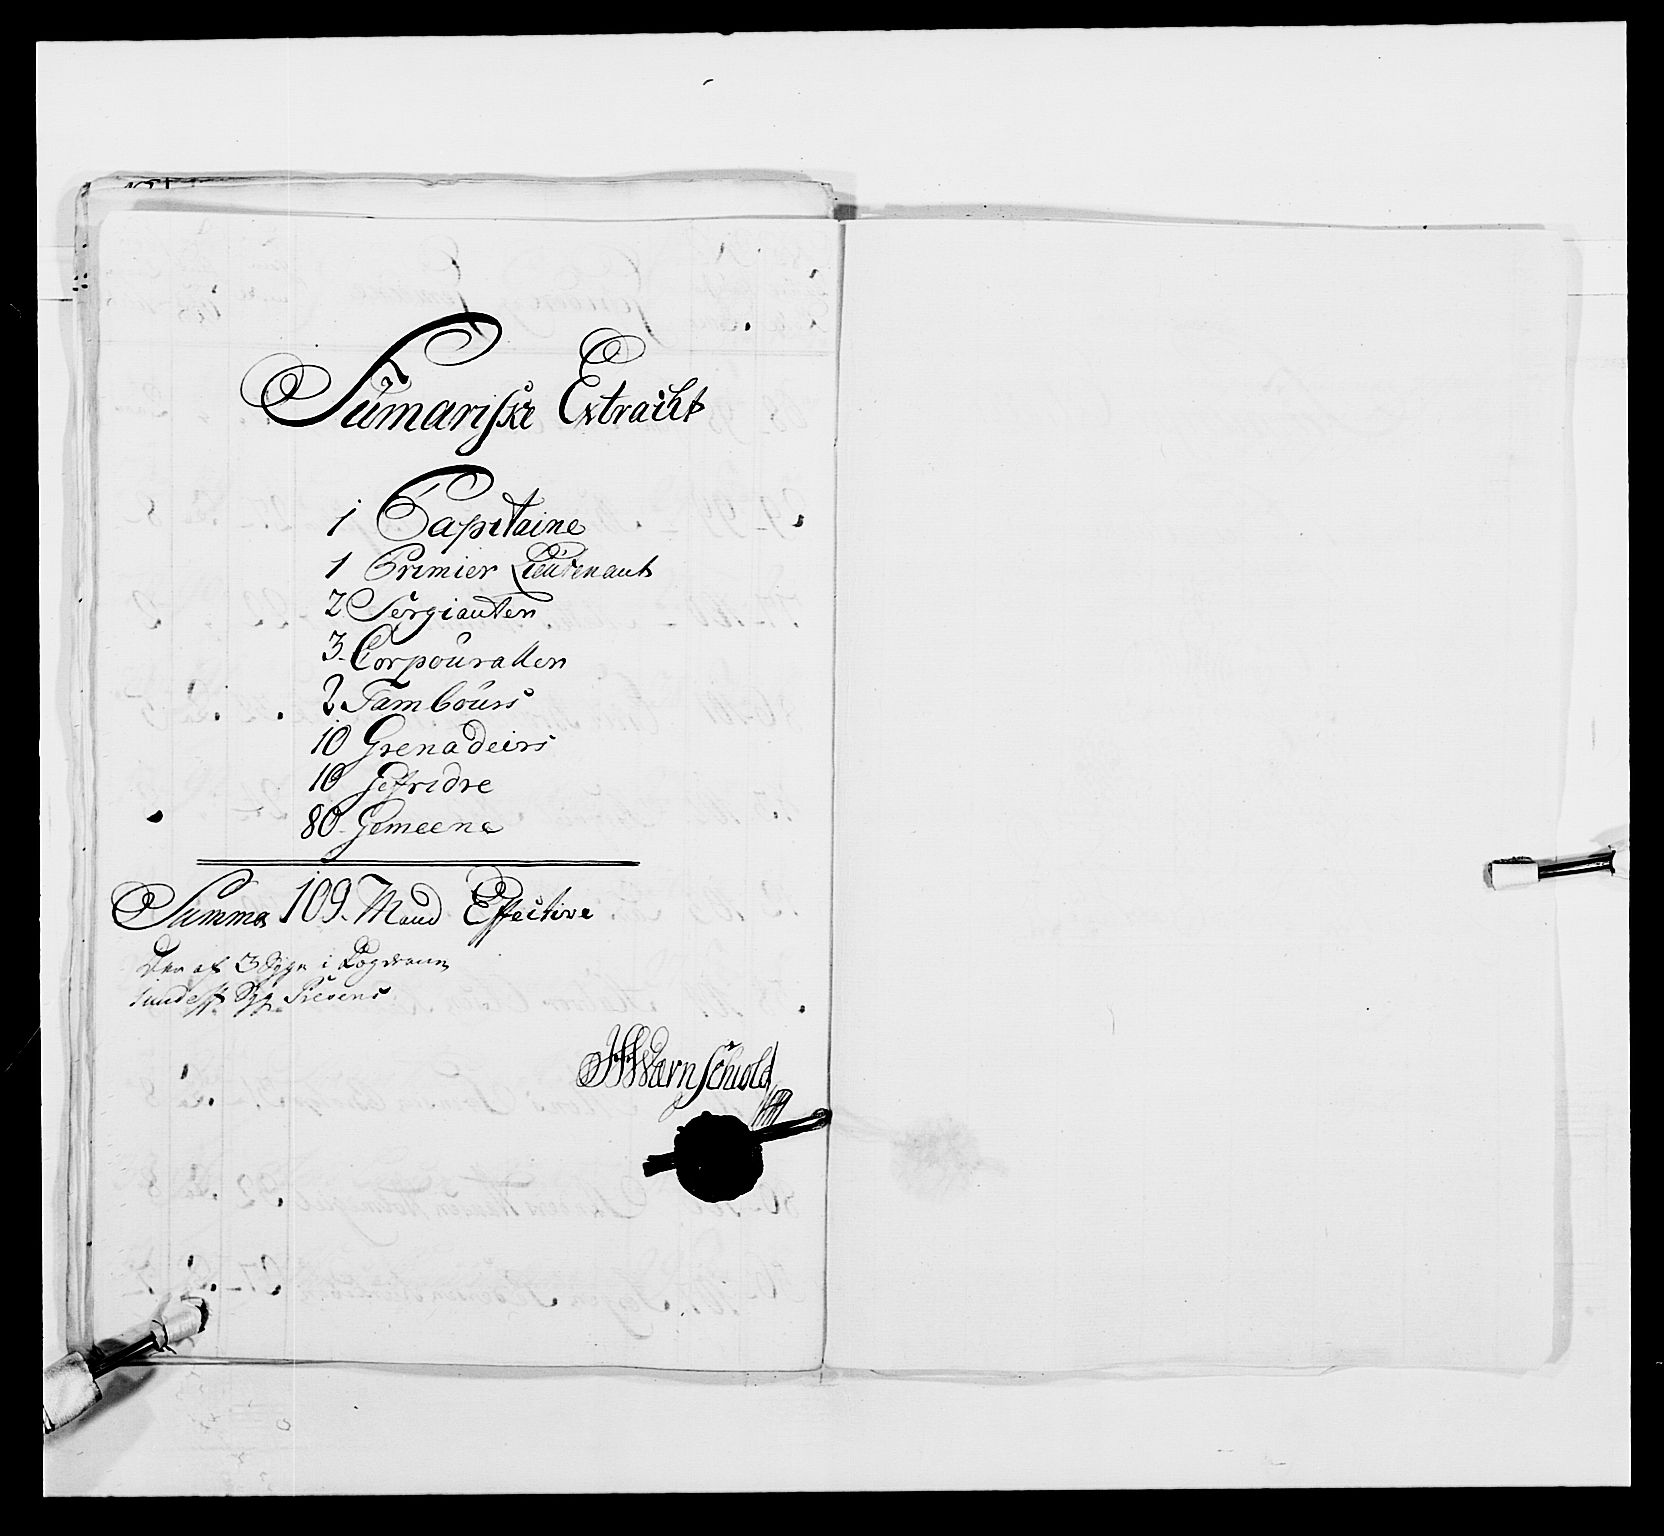 Sumariske Extracht
1 Capitaine
1 Primier Lieutenant
2 Sergianten
3. Corpourallen
2 Tambours
10 Grenadeirs
10 Gefridre
80. Gemeene
Summa 109. Mand Effective
Der af 3 Syge i
Syg
HWærnSchiold